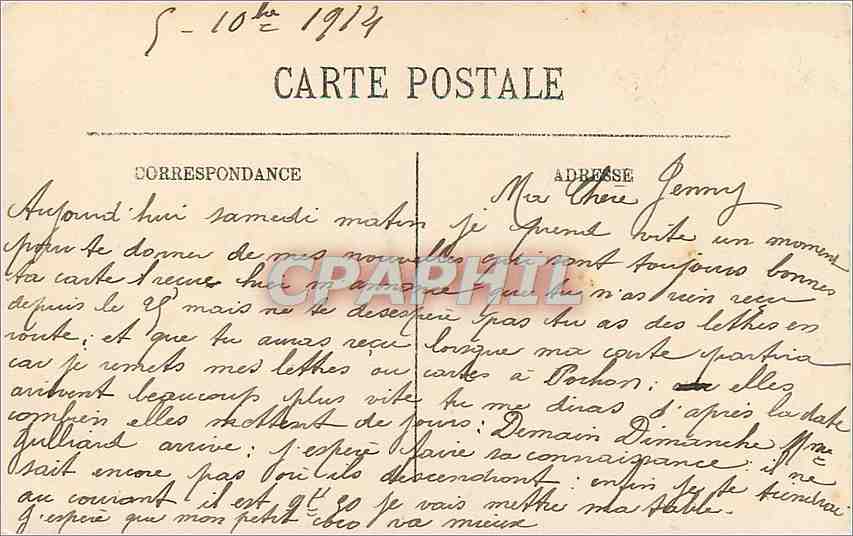 5 - 10bre 1914
CARTE POSTALE
CORRESPONDANCE
ADRESSE
Ma Chère Jenny
Aujourd'hui samedi matin je prend vite un moment
pour te donner de mes nouvelles qui sont toujours bonnes
ta carte reçue hier m'annonce que tu n'as rien reçu
depuis le 25 mais ne te desespère pas tu as des lettres en
route; et que tu auras reçu lorsque ma carte partira
car je remets mes lettres ou cartes à Pochon; elles
arrivent beaucoup plus vite tu me diras d'après la date
combien elles mettent de jours; Demain Dimanche Mme
Gulliard arrive; j'espère faire sa connaissance; il ne
sait encore pas où ils descendront; enfin je te tiendrai
au courant il est 9h 30 je vais mettre ma table.
J'espère que mon petit coco va mieux
CPAPHIL